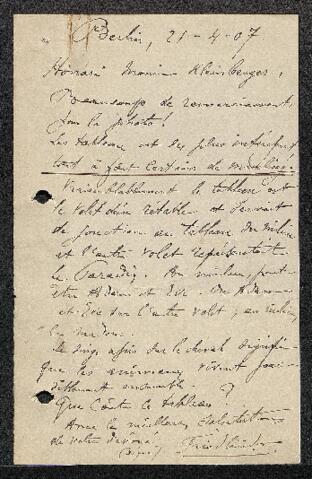 Berlin, 21-4-07
Honoré Monsieur Kleinberger,
Beaucoup de remerciements
pour la photo!
Les tableaux est des plus intéressant
tout à fait certain de
Vraisemblablement le tableau est
le volet d'un rétable et servait
de jonction au tableau du milieu
et l'autre volet représentait
le Paradis. Au milieu, peut-
être Adam et Eve. Ou Adam
et Eve sur l'autre volet; au milieu,
la
Le singe assis sur le cheval signifie
que les animaux vivent
ensemble.
Que coûte le tableau?
Avec les meilleures salutations
de votre dévoué
(signé) Friedländer